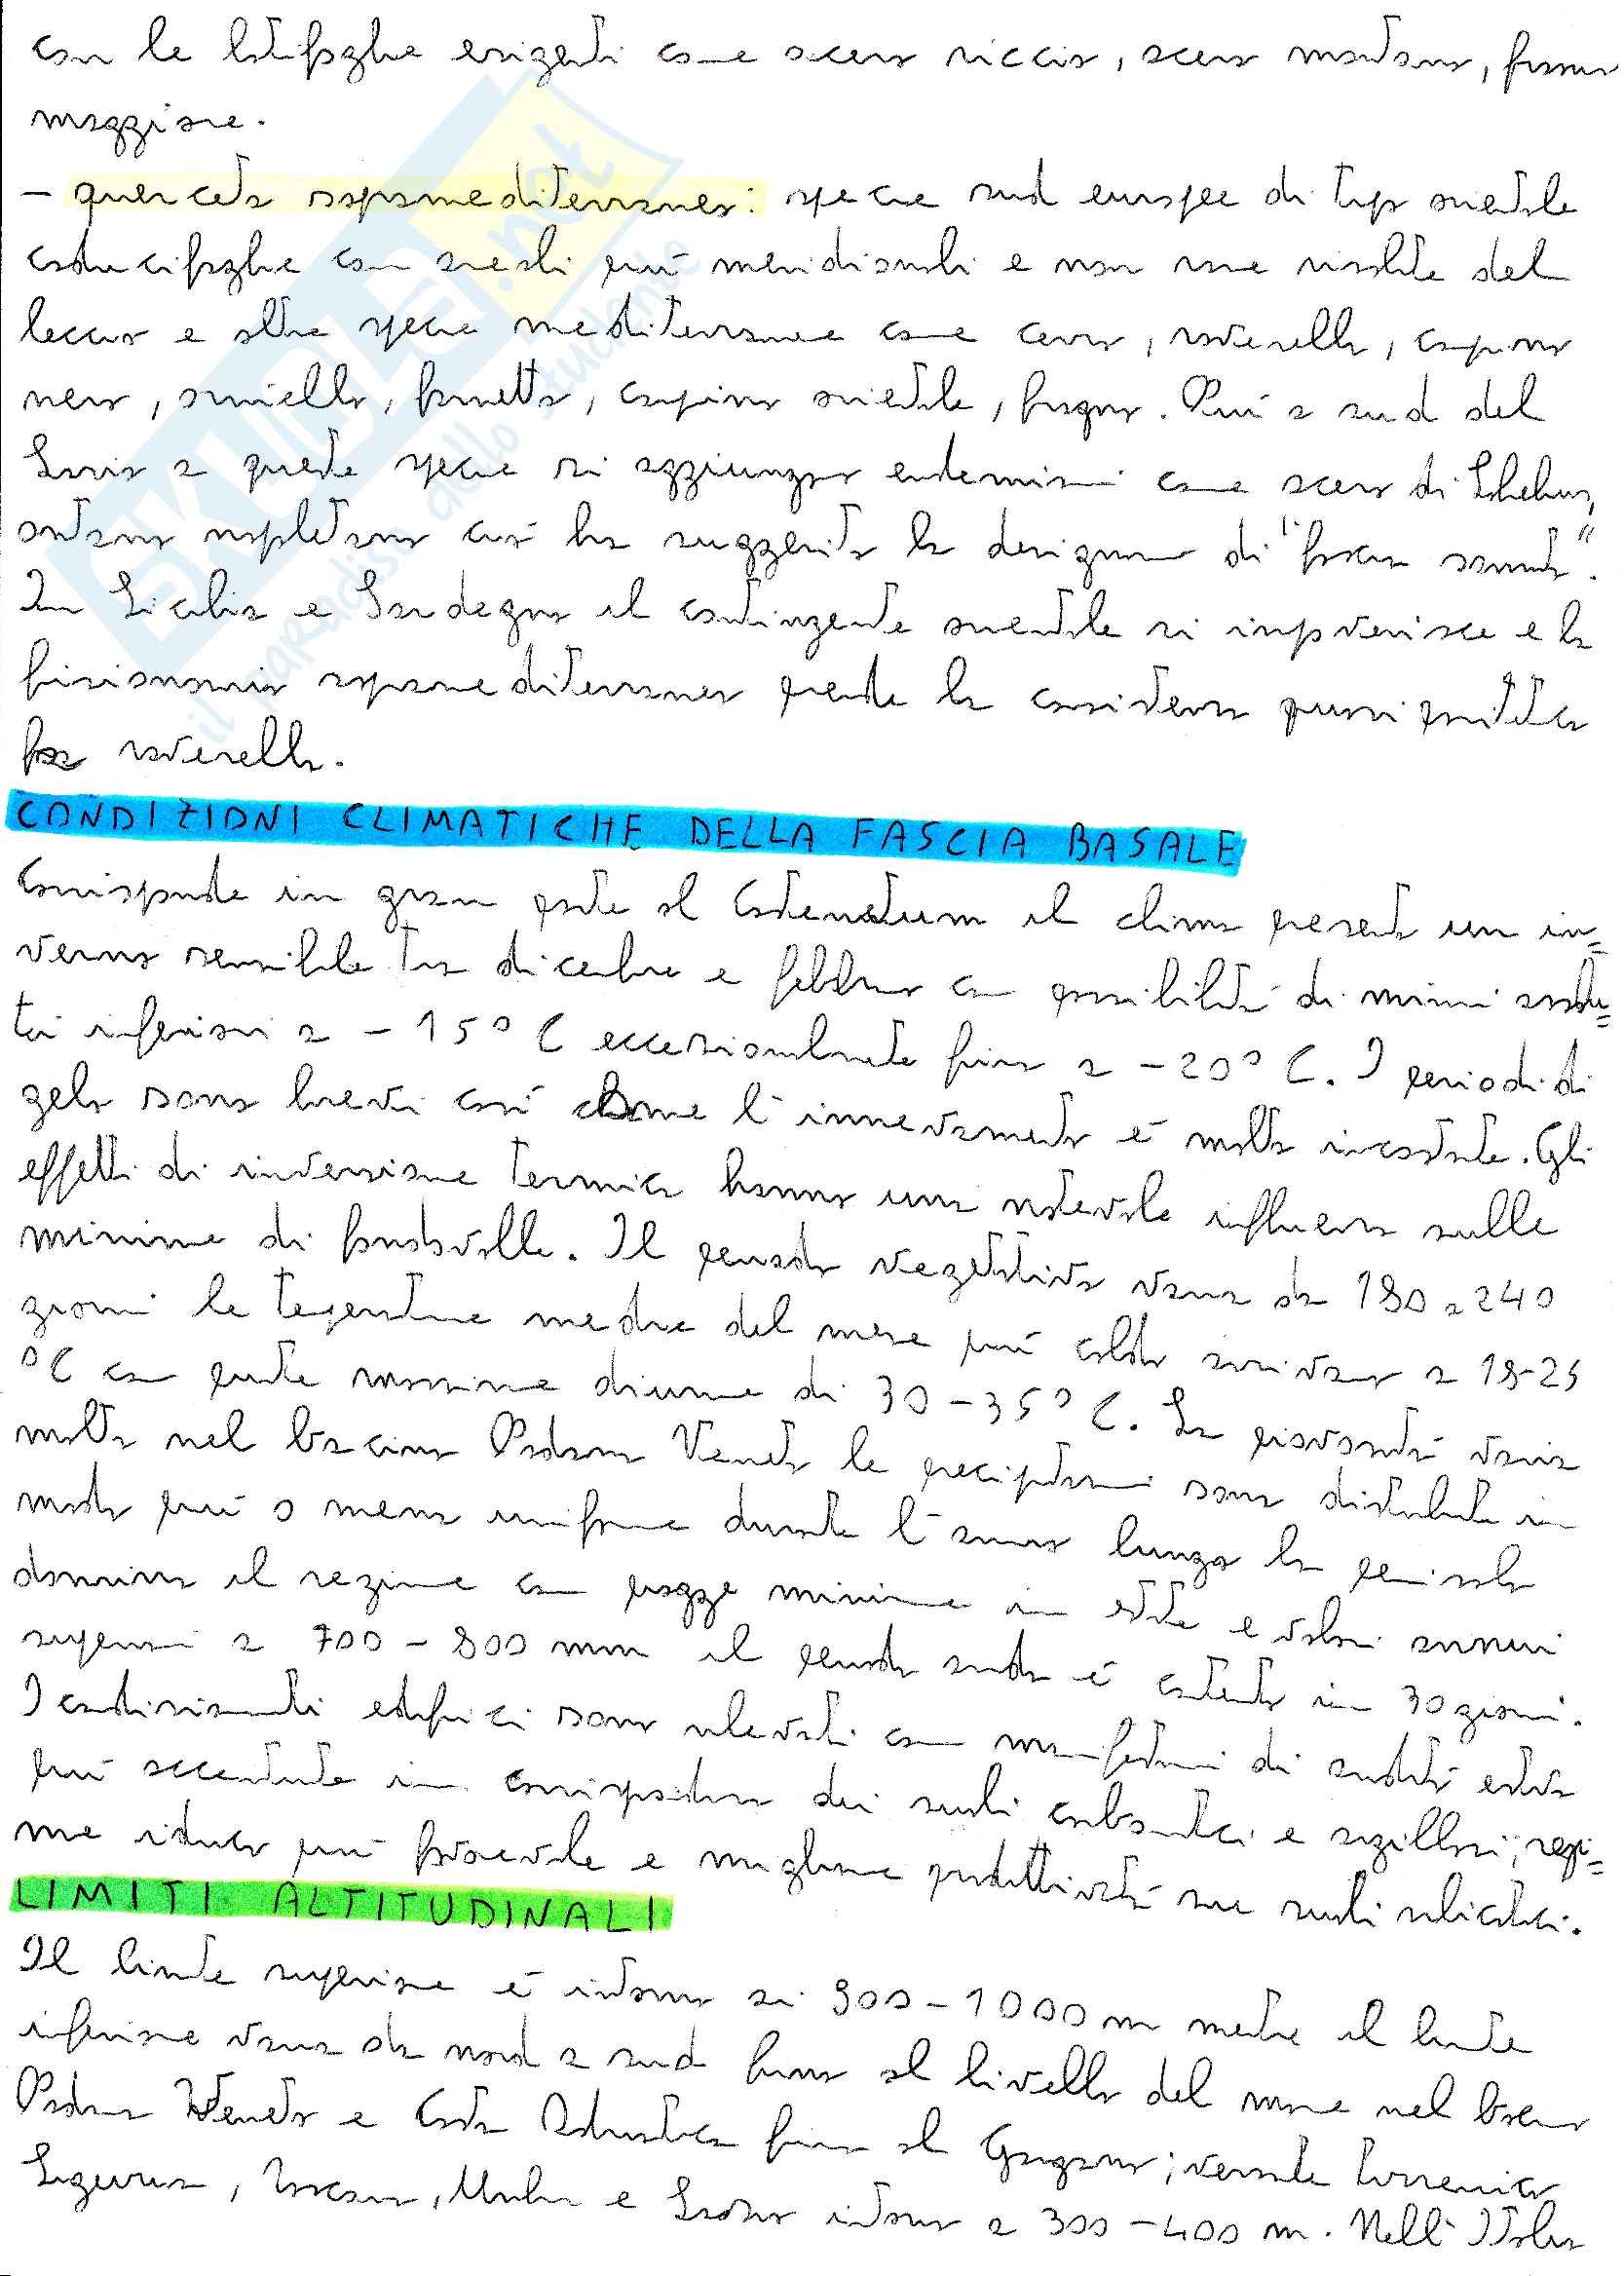 con le latifoglie esigenti come acero riccio, acero montano, frassino
maggiore.
- querceto sopramediterraneo: specie sud europee di tipo orientale
caducifoglie con areali più meridionali e non rare risalite del
leccio e altre specie mediterranee come cerro, roverella, carpino
nero, orniello, farnetto, carpino orientale, fragno. Più a sud del
Lazio a queste specie si aggiungono endemismi come acero di Lobelius,
ontano napoletano ciò ha suggerito la designazione di "bosco sannita".
In Sicilia e Sardegna il contingente orientale si impoverisce e la
fisionomia sopramediterranea prende la consistenza quasi
roverella.
CONDIZIONI CLIMATICHE DELLA FASCIA BASALE
Corrisponde in gran parte al Castanetum il clima presenta un in=
verno sensibile tra dicembre e febbraio con possibilità di minimi assolu=
ti inferiori a -15°C eccezionalmente fino a -20°C. I periodi di
gelo sono brevi così come l'innevamento è molto incostante. Gli
effetti di inversione termica hanno una notevole influenza sulle
minime di fondovalle. Il periodo vegetativo varia da 180 a 240
giorni le temperature medie del mese più caldo arrivano a 18-25
°C con punte massime diurne di 30-35°C. La piovosità varia
molto nel bacino Padano Veneto le precipitazioni sono distribuite in
modo più o meno uniforme durante l'anno lungo la penisola
domina il regime con piogge minime in estate e valori annui
superiori a 700-800 mm il periodo arido è contenuto in 30 giorni.
I condizionamenti edafici sono rilevanti con manifestazioni di aridità estiva
più accentuate in corrispondenza dei suoli carbonatici e argillosi; regi=
me idrico più favorevole e migliore produttività su suoli silicatici.
LIMITI ALTITUDINALI
Il limite superiore è intorno ai 900-1000 m mentre il limite
inferiore varia da nord a sud fino al livello del mare nel bacino
Padano Veneto e Costa Adriatica fino al Gargano; versante tirrenico
Liguria, Toscana, Umbria e Lazio intorno a 300-400 m. Nell'Italia
SKUOLA.net
il paradiso dello studente